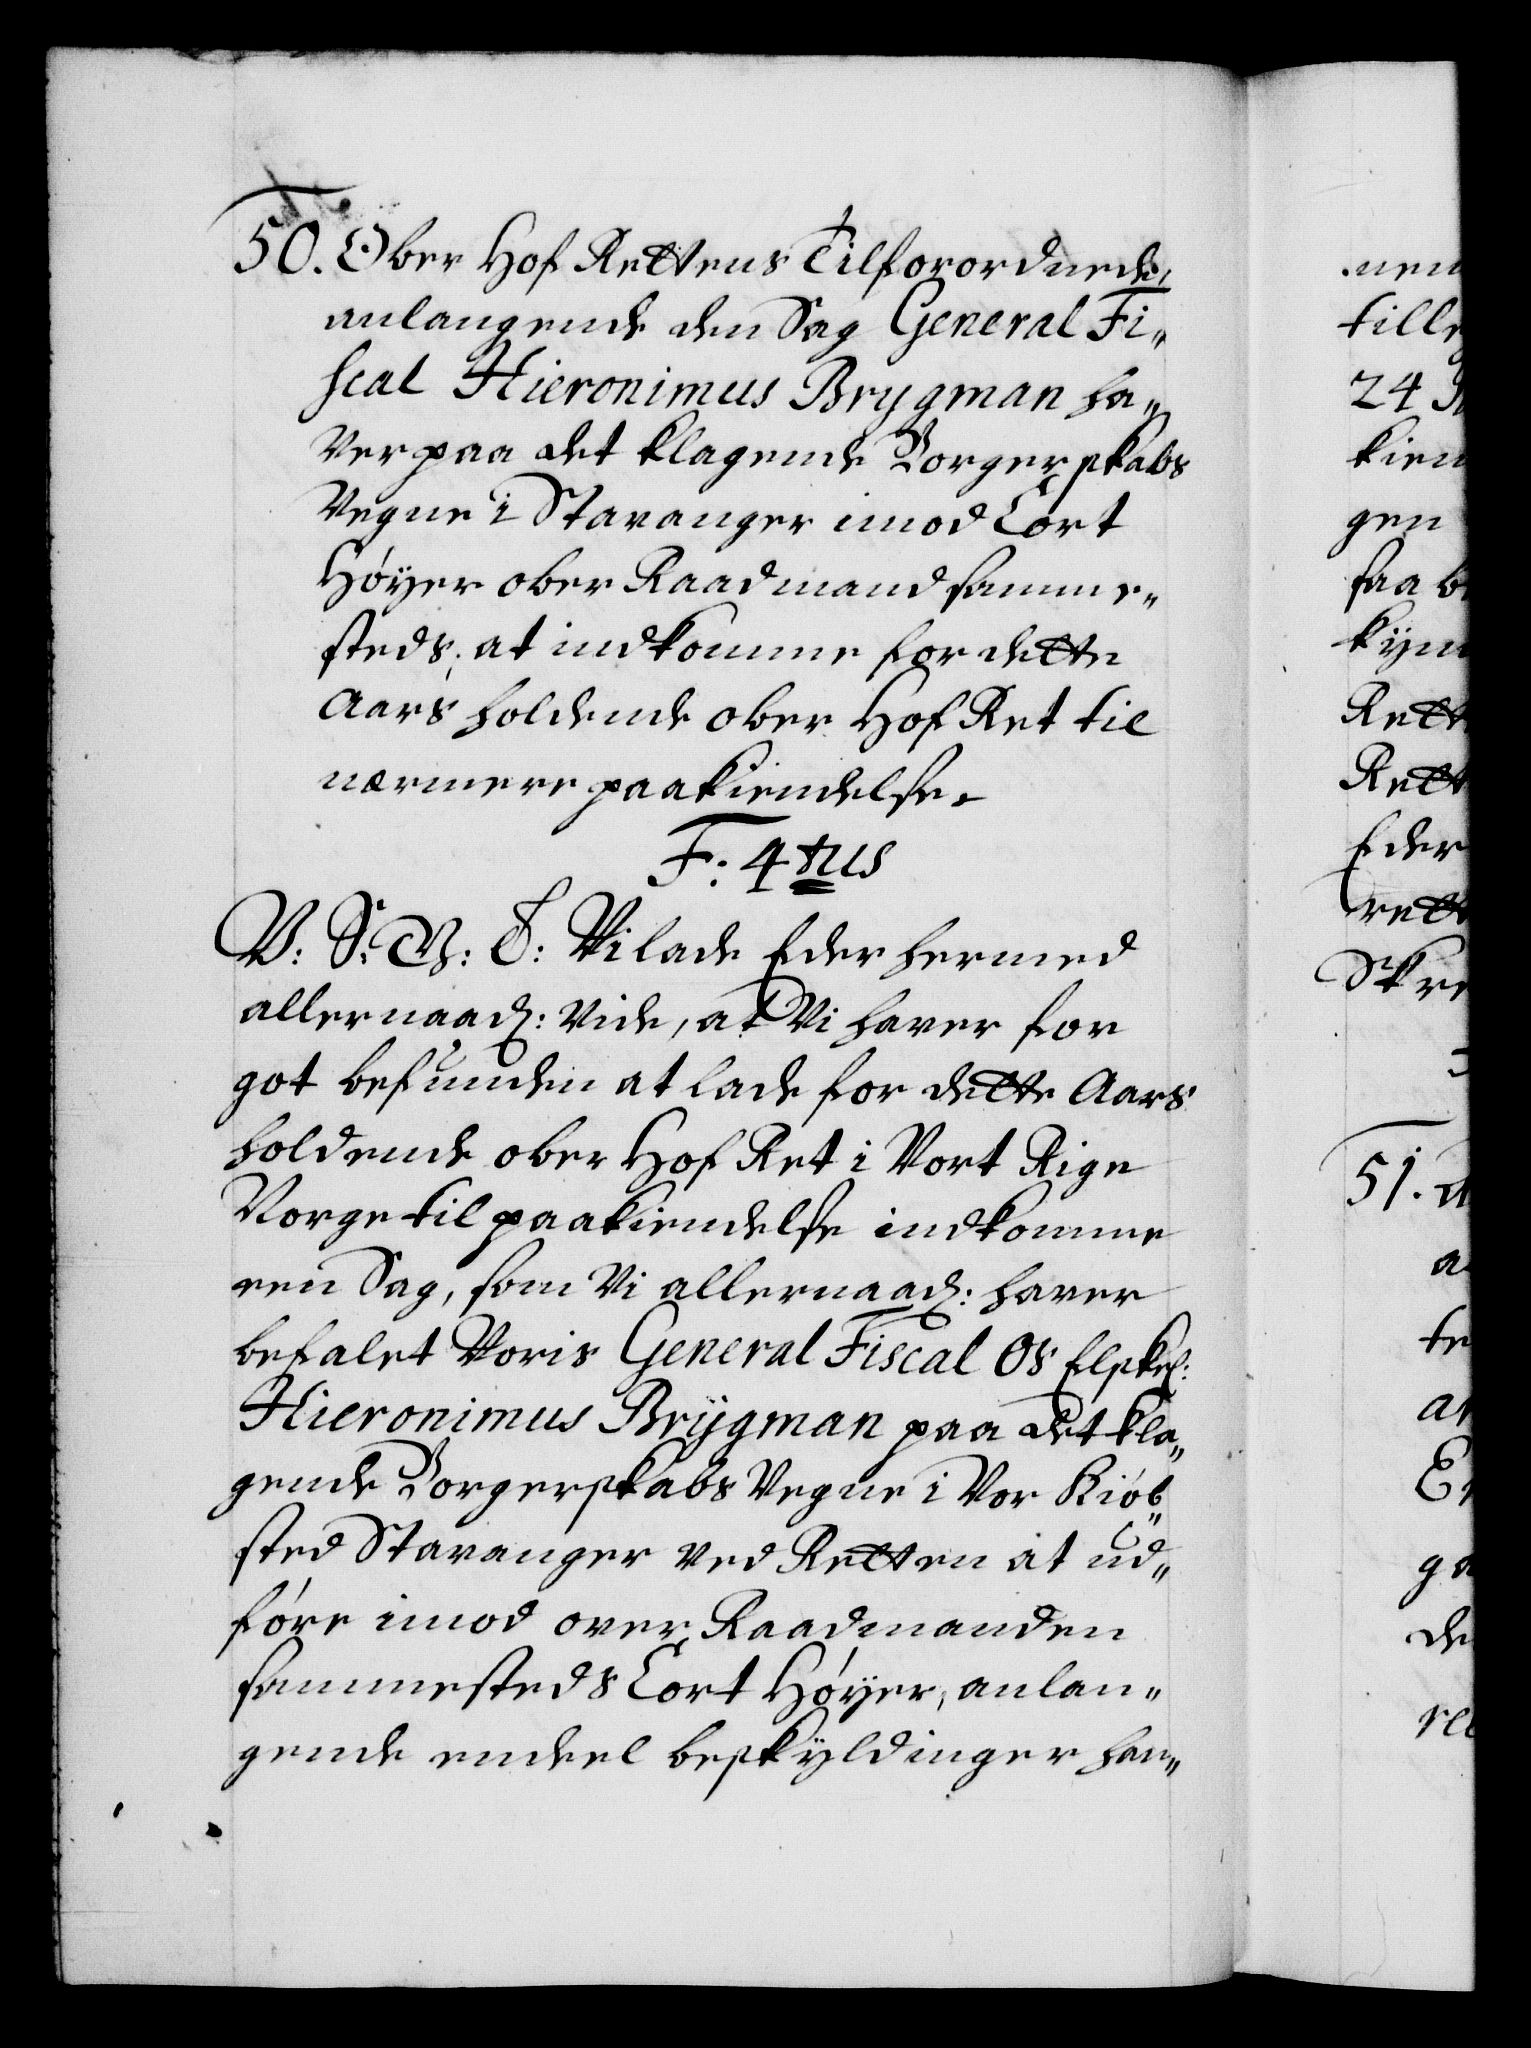 50. Ober Hof Rettens Tilforordnede,
anlangende den Sag General Fi„
scal Hieronimus Brygman ha„
ver paa det klagende Borgerskabs
Vegne i Stavanger imod Cort
Høyer ober Raadmand samme„
steds, at indkomme for dette
Aars holdende ober Hof Ret til
nærmere paakiendelse.
F: 4tus
V: S: V: T: Vi lade Eder hermed
allernaad: vide, at Vi haver for
got befunden at lade for dette Aars
holdende ober Hof Ret i Vort Rige
Norge til paakiendelse indkomme
een Sag, som Vi allernaad: haver
befalet Voris General Fiscal Os Elskel:
Hieronimus Brÿgman paa det kla„
gende Borgerskabs Vegne i Vor Kiøb„
sted Stavanger ved Retten at ud„
føre imod over Raadmanden
sammesteds Cort Høyer, anlan„
gende endeel beskyldinger han„
nem
tille
24
kien
gen
saa be
kyn
Rett
Rett
Eder
rett
Skre
51.
a
te
an
En
ga
de